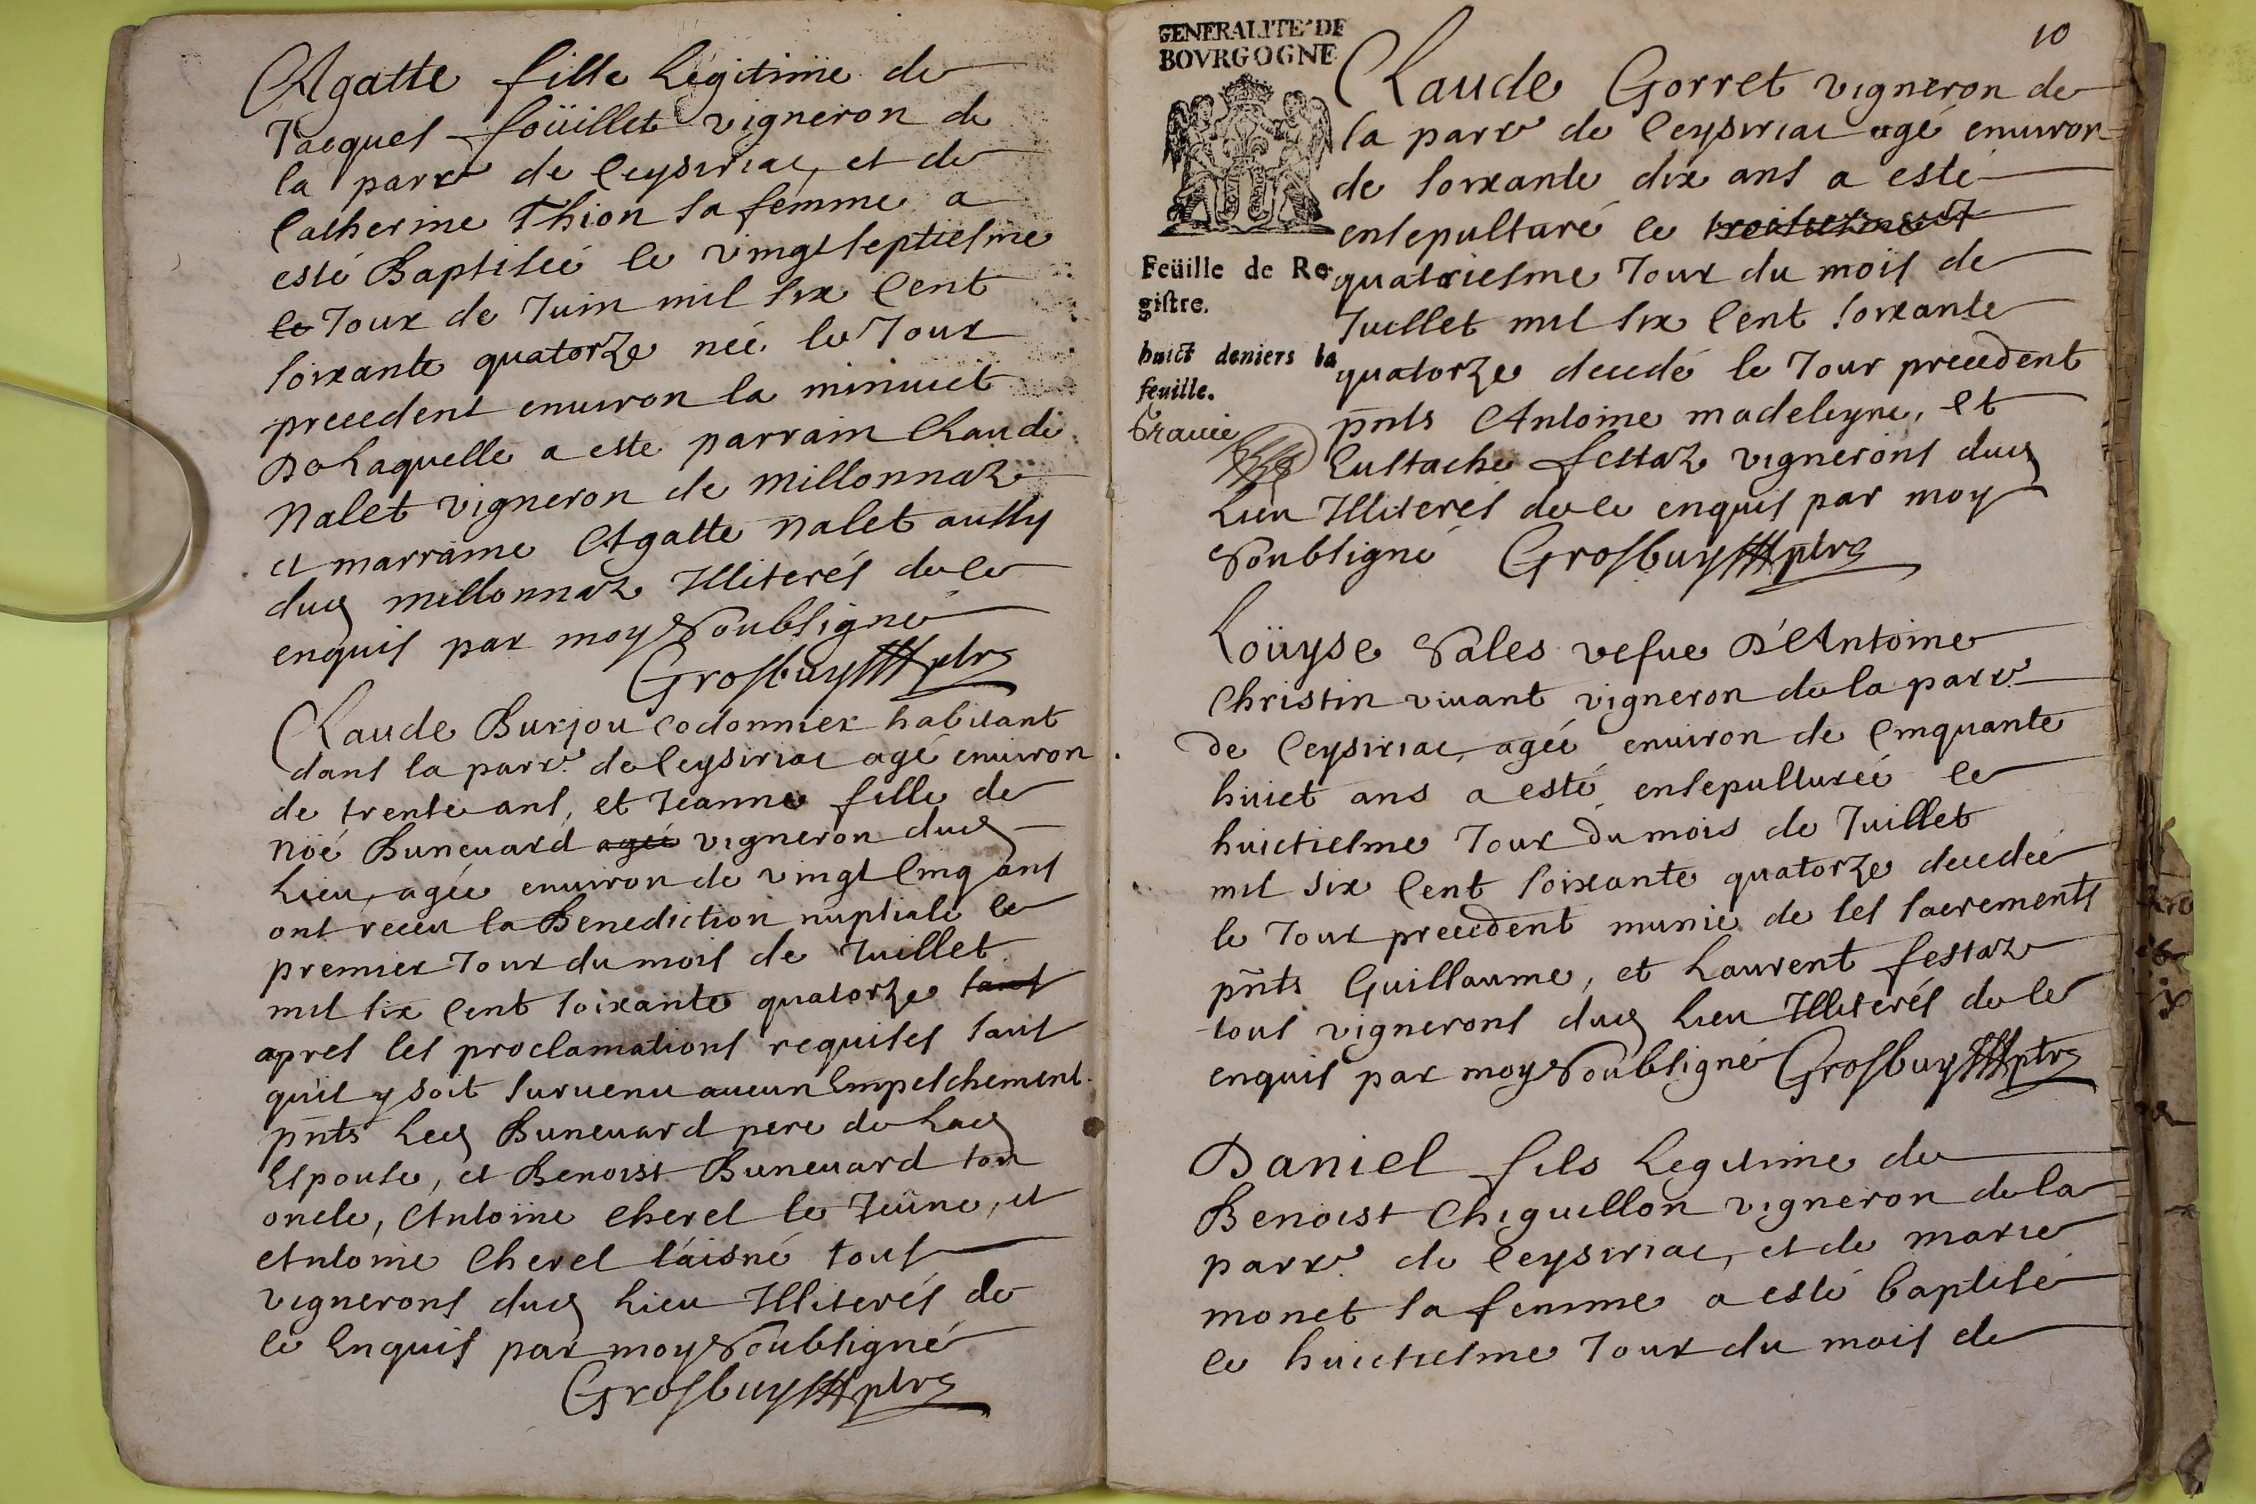 Agatte fille Légitime de
Jacques foüillet vigneron de
la parr.e de Ceysiriac, et de
Catherine Thion sa femme a
esté Baptisée le vingtseptiesme
le Jour de Juin mil six Cent
soixante quatorze née le Jour
precedent enuiron la minuict
De Laquelle a esté parrain Claude
Nalet vigneron de millonnaz
et marraine Agatte Nalet aussy
dud millonnaz Illiterés de ce
enquis par moy Soubsigné
Grosbuy ptre
Claude Burjou Codonnier habitant
dans la parr.e de Ceysiriac agé enuiron
de trente ans, et Jeanne fille de
Noé Buneuard agée vigneron dud
Lieu, agée enuiron de vingt Cinq ans
ont receu la Benediction nuptiale le
premier Jour du mois de Juillet
mil six Cent soixante quatorze sans
apres les proclamations requises sans
qu'il y soit suruenu aucun Empeschement
pñts Led Buneuard pere de Lad
Espouse, et Benoist Buneuard son
oncle, Antoine Cherel le Jeüne, et
Antoine Cherel l'aisné tous
vignerons dud Lieu Illiterés de
ce Enquis par moy Soubsigné
Grosbuy ptre
10
GENERALITE' DE
BOVRGOGNE
Feüille de Re-
gistre.
huict deniers la
feuille.
Claude Gorret vigneron de
la parr.e de Ceysiriac agé enuiron
de soixante dix ans a esté
ensepulturé le troisiesme
quatriesme Jour du mois de
Juillet mil six Cent soixante
quatorze decedé le Jour precedent
pñts Antoine madeleyne, et
Eustache festaz vignerons dud
Lieu Illiterés de ce enquis par moy
Soubsigné Grosbuy ptre
Loüyse Sales vefue D'Antoine
Christin viuant vigneron de la parr.e
de Ceysiriac, agée enuiron de Cinquante
huict ans a esté ensepulturée le
huictiesme Jour du mois de Juillet
mil six Cent soixante quatorze decedée
le Jour precedent munie de ses sacrements
pñts Guillaume, et Laurent festaz
tous vignerons dud Lieu Illiterés de ce
enquis par moy Soubsigné Grosbuy ptre
Daniel fils Legitime de
Benoist Chiguillon vigneron de la
parr.e de Ceysiriac, et de marie
monet sa femme a esté baptisé
le huictiesme Jour du mois de